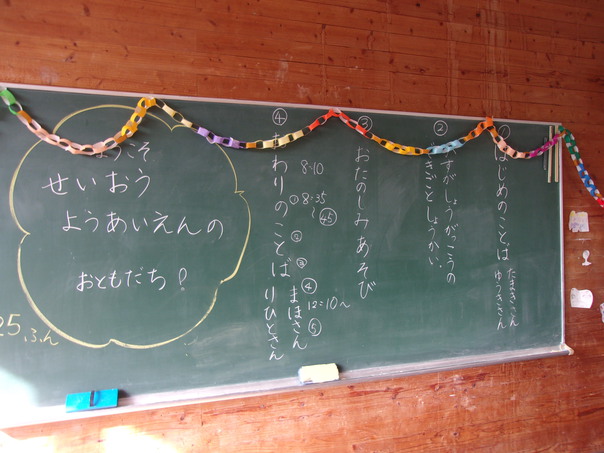 ようこそ
せいおう
ようあいえんの
おともだち！
25ふん
①
はじめのことば
たまきさん
ゆうきさん
②
やすがしょうがっこうの
できごとしょうかい
③
おたのしみあそび
④
おわりのことば
りひとさん
まほさん
8:10
① 8:35
〜
㊺
②
③
④
12:10〜
⑤